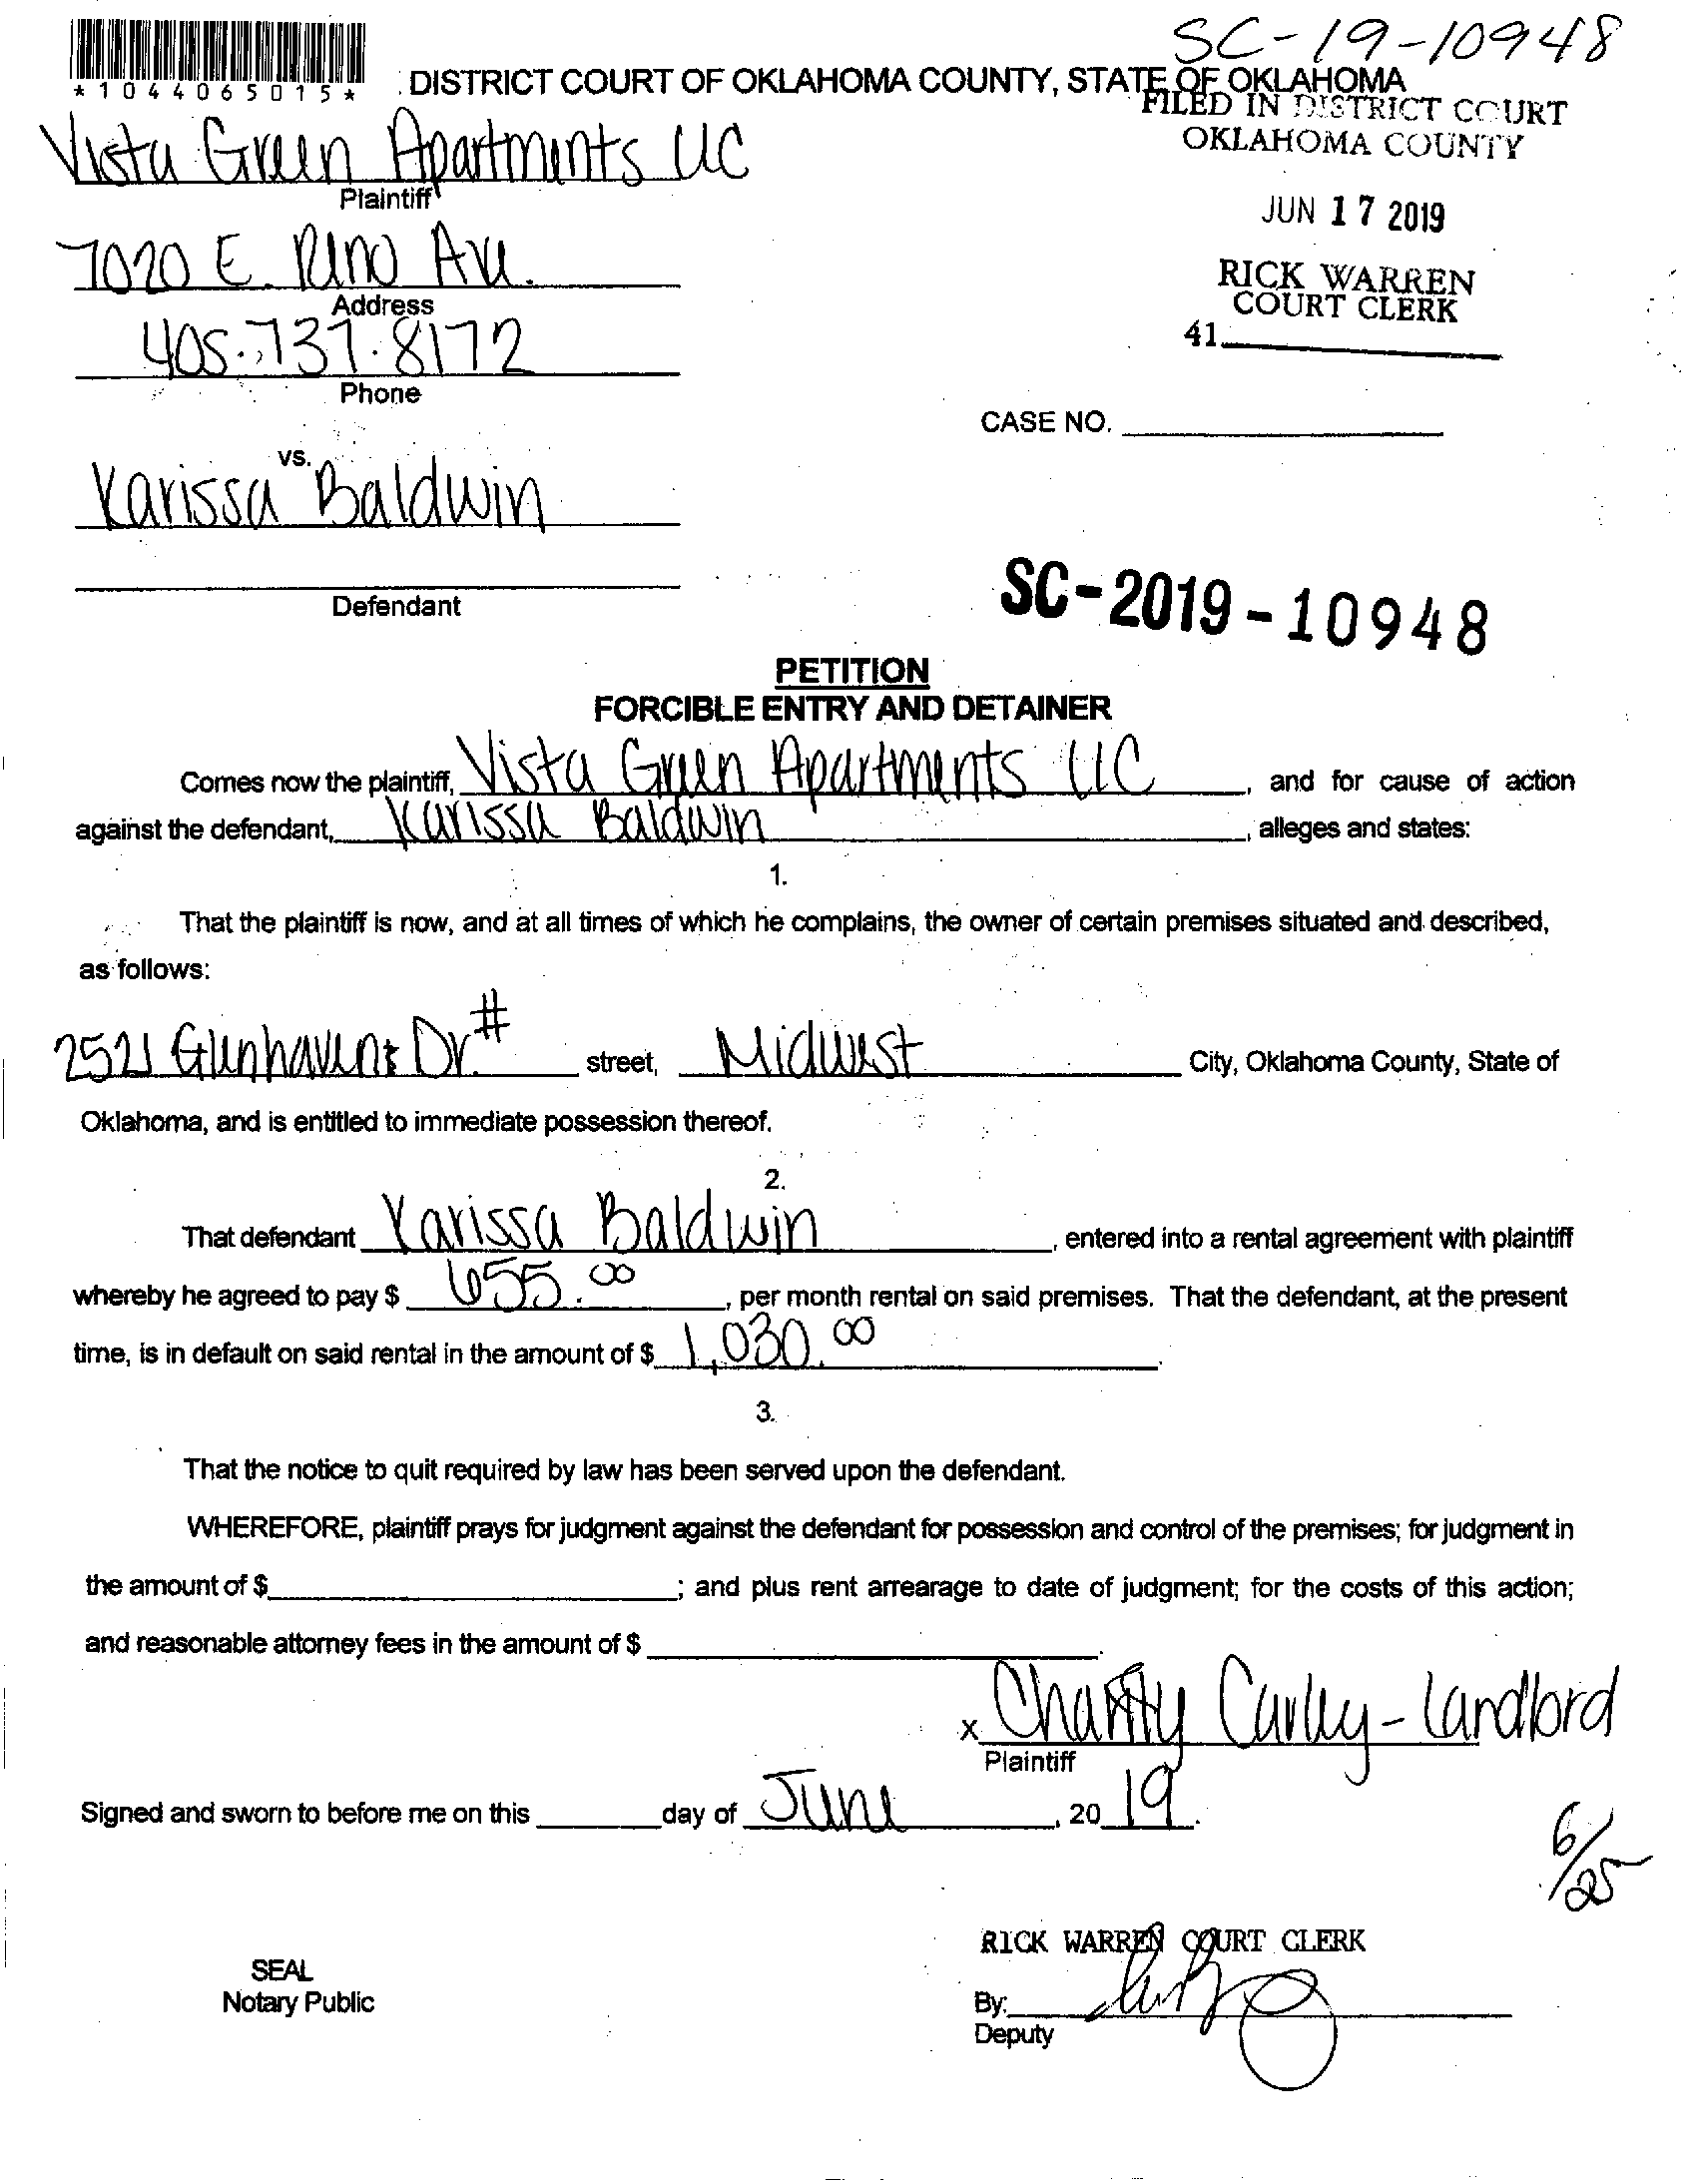 SC-19-10948
*1044065015*
DISTRICT COURT OF OKLAHOMA COUNTY, STATE OF OKLAHOMA
FILED IN DISTRICT COURT
OKLAHOMA COUNTY
JUN 17 2019
RICK WARREN
COURT CLERK
41
Vista Green Apartments LLC
Plaintiff
7020 E. Reno Ave.
Address
405.737.8172
Phone
CASE NO.
vs.
Karissa Baldwin
Defendant
SC-2019-10948
PETITION
FORCIBLE ENTRY AND DETAINER
Comes now the plaintiff, Vista Green Apartments LLC, and for cause of action
against the defendant, Karissa Baldwin, alleges and states:
1.
That the plaintiff is now, and at all times of which he complains, the owner of certain premises situated and described,
as follows:
2521 Glenhavens Dr. # street, Midwest City, Oklahoma County, State of
Oklahoma, and is entitled to immediate possession thereof.
2.
That defendant Karissa Baldwin, entered into a rental agreement with plaintiff
whereby he agreed to pay $ 655.00, per month rental on said premises. That the defendant, at the present
time, is in default on said rental in the amount of $ 1,030.00.
3.
That the notice to quit required by law has been served upon the defendant.
WHEREFORE, plaintiff prays for judgment against the defendant for possession and control of the premises; for judgment in
the amount of $ ; and plus rent arrearage to date of judgment; for the costs of this action;
and reasonable attorney fees in the amount of $ .
x Charity Carley - Landlord
Plaintiff
Signed and sworn to before me on this day of June, 2019.
6/25
RICK WARREN COURT CLERK
SEAL
Notary Public
By:
Deputy